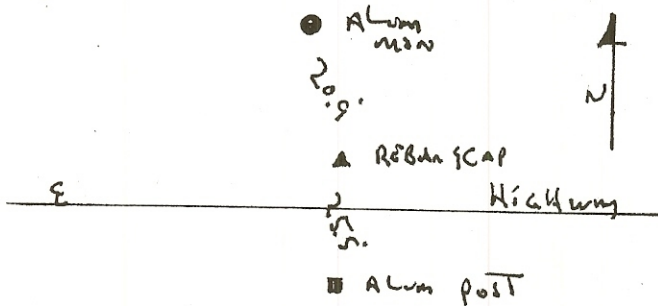 ALUM
MON
20.9'
N
REBAR & CAP
℄
HIGHWAY
ALUM POST